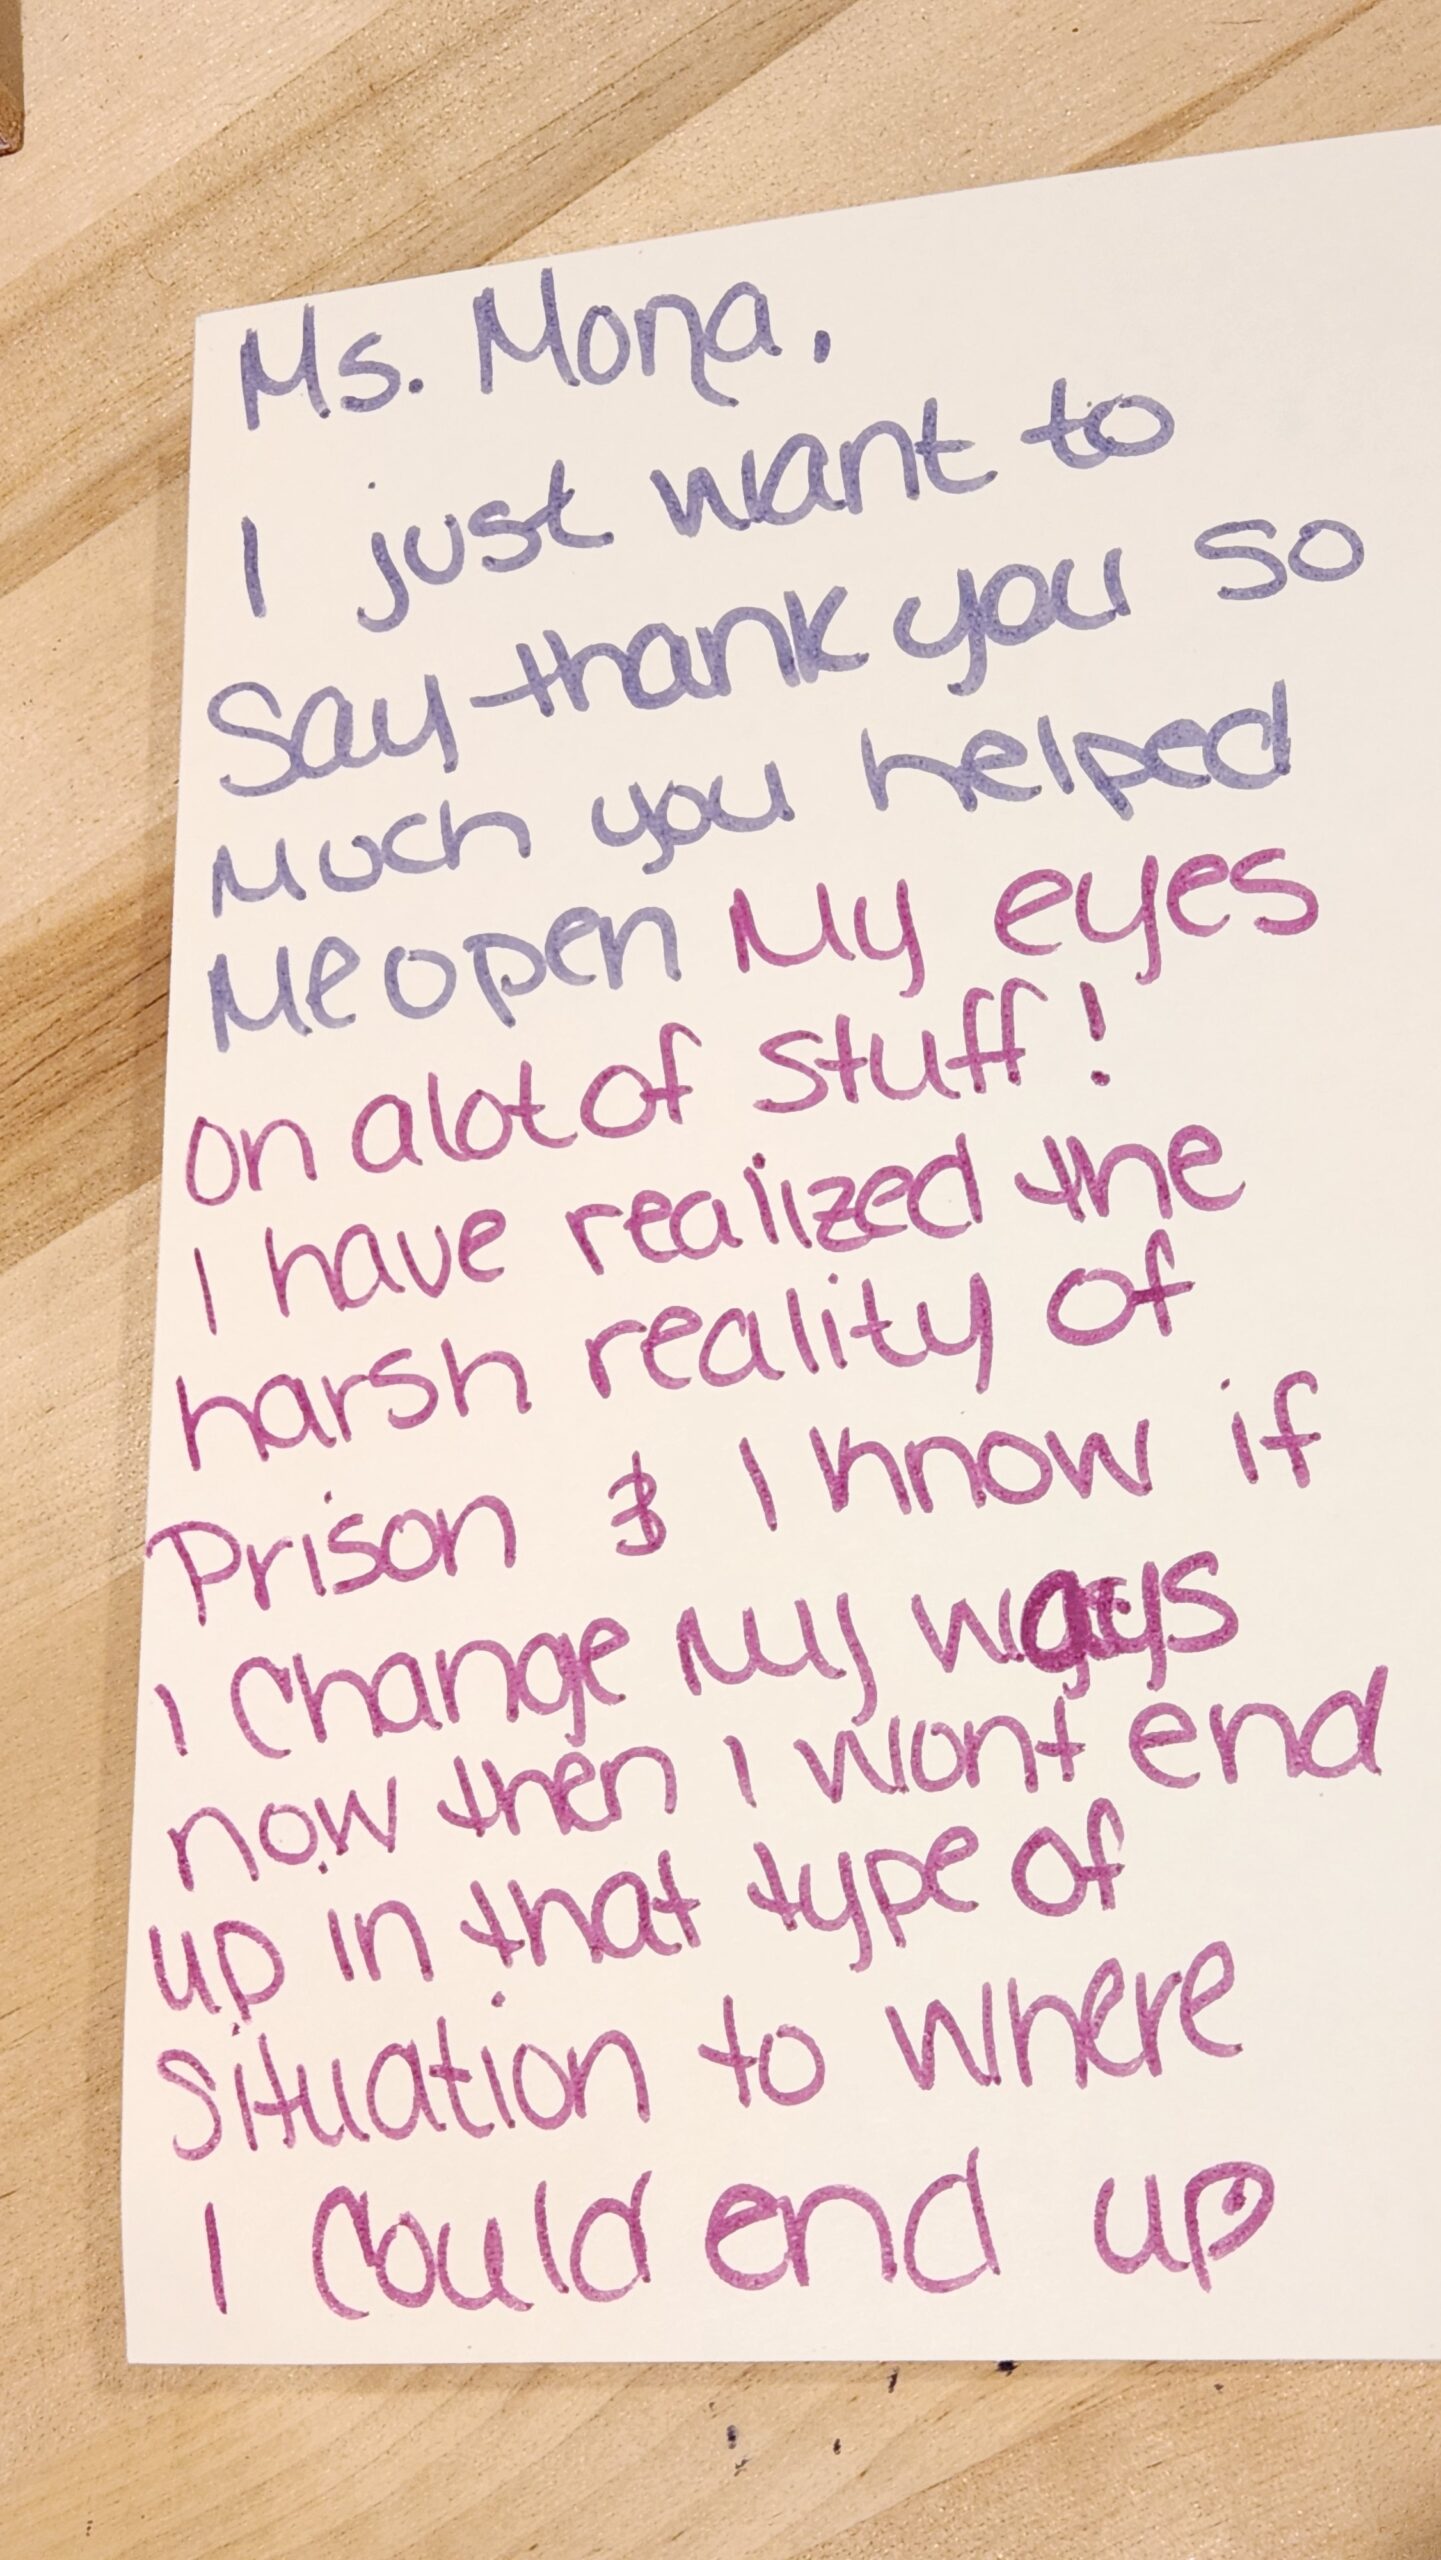 Ms. Mona,
I just want to
Say thank you so
Much you helped
Me open My eyes
on alot of stuff!
I have realized the
harsh reality of
Prison & I know if
I Change My ways
now then I wont end
up in that type of
Situation to where
I Could end up